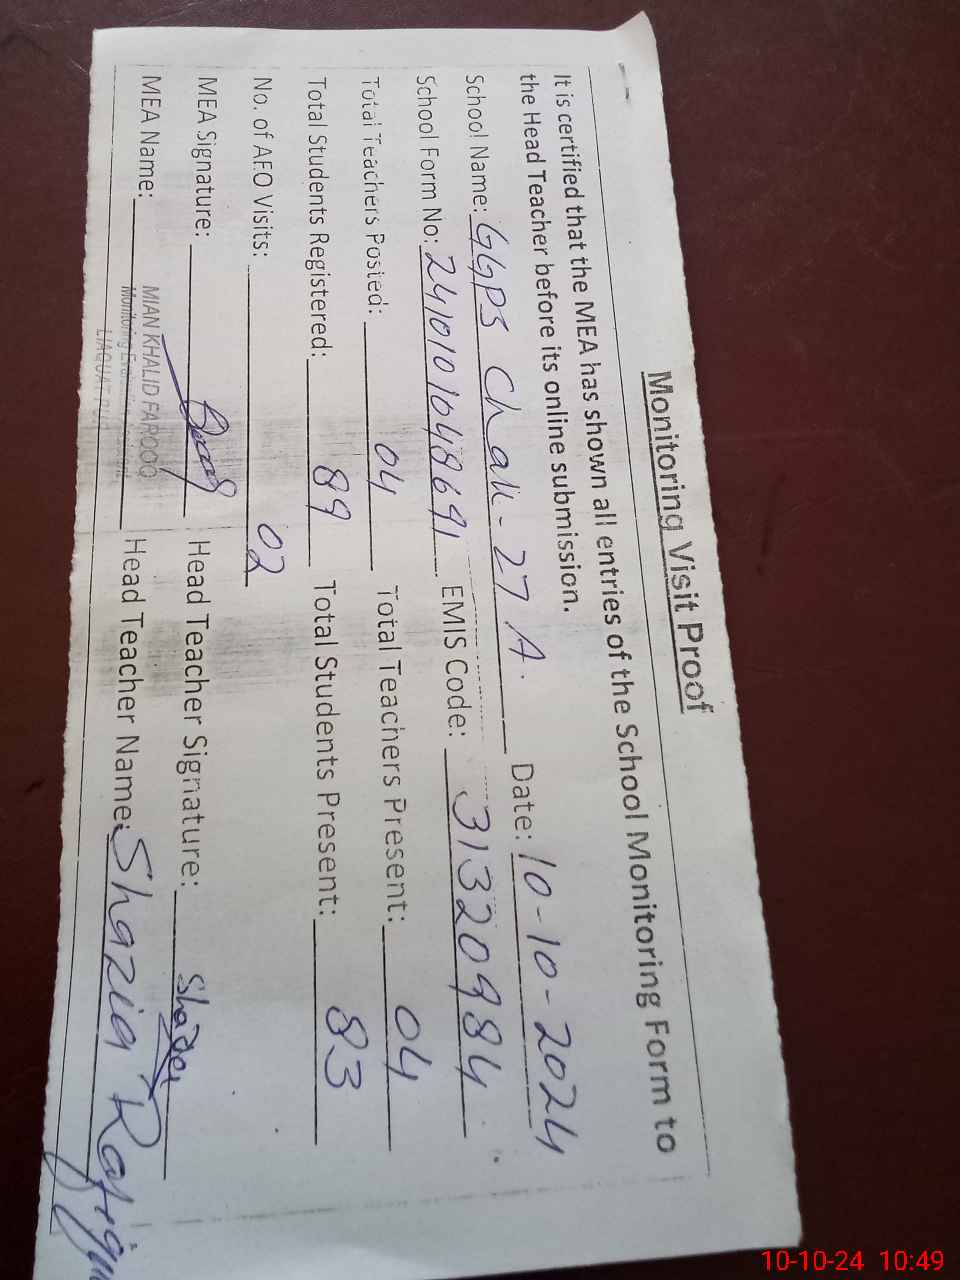 Monitoring Visit Proof
It is certified that the MEA has shown all entries of the School Monitoring Form to
the Head Teacher before its online submission.
School Name: GGPS Chak-27 A. Date: 10-10-2024
School Form No: 2410101048691 EMIS Code: 31320984
Total Teachers Posted: 04 Total Teachers Present: 04
Total Students Registered: 89 Total Students Present: 83
No. of AEO Visits: 02
MEA Signature: Head Teacher Signature:
MEA Name: MIAN KHALID FAROOQ Head Teacher Name: Shazia Rafique
Monitoring
LIAQUAT
10-10-24 10:49